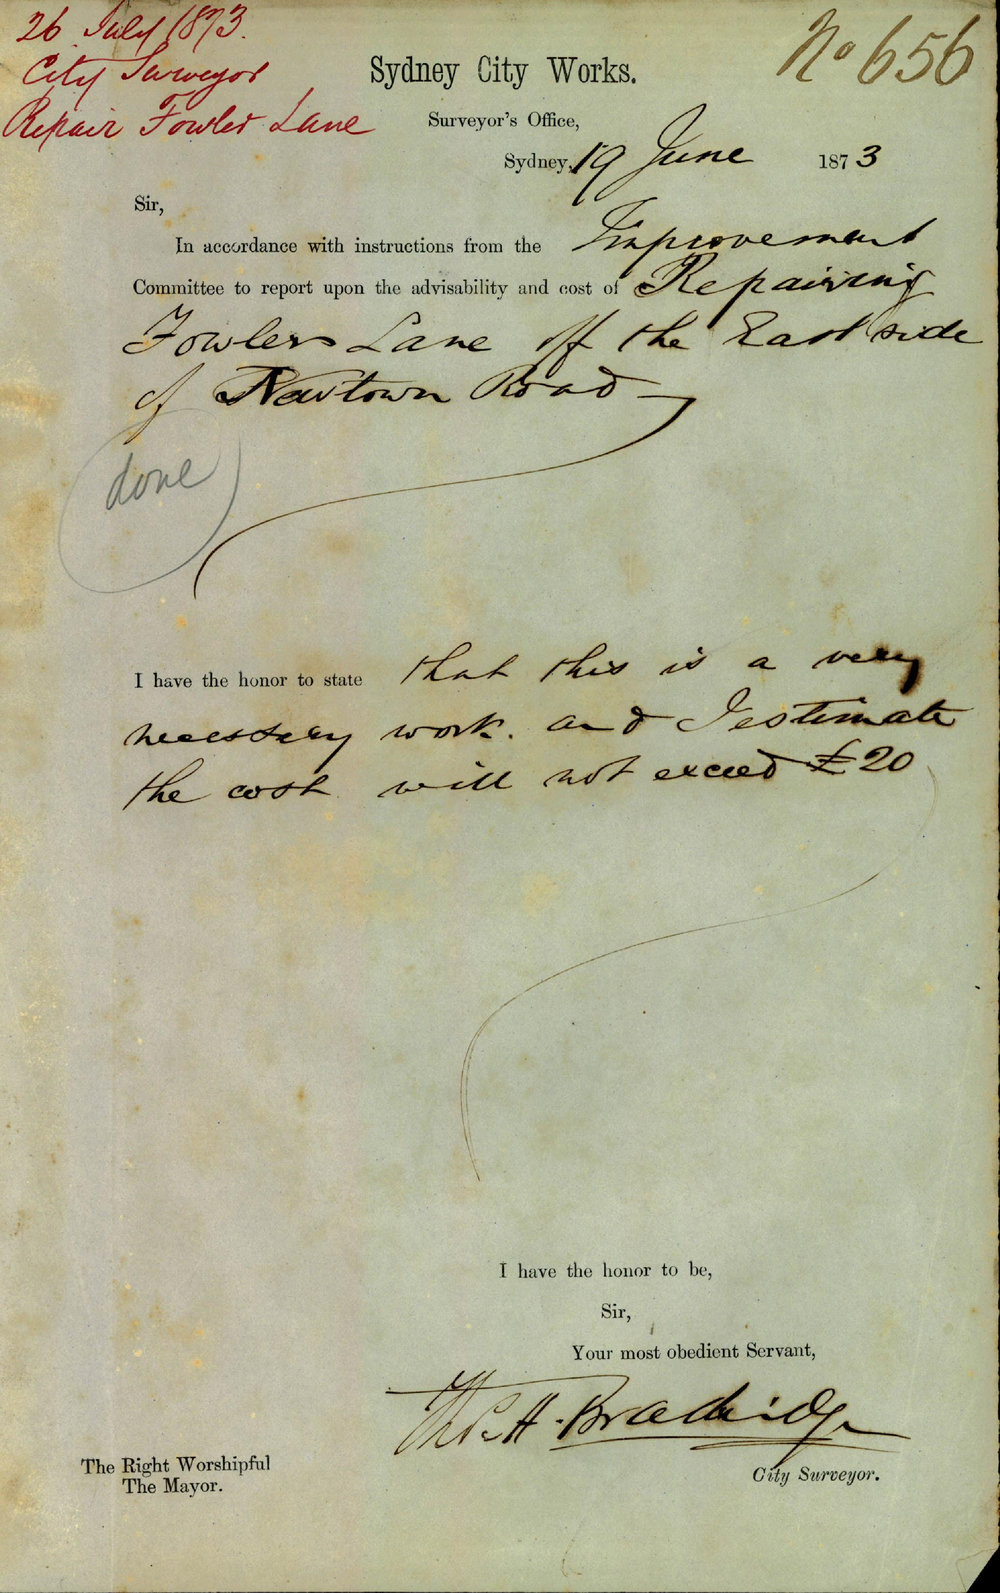 26 July 1873.
City Surveyor
Repair Fowler Lane
No 656
Sydney City Works.
Surveyor's Office,
Sydney, 19 June 1873
Sir,
In accordance with instructions from the Improvement
Committee to report upon the advisability and cost of Repairing
Fowlers Lane off the East side
of Newtown Road
done
I have the honor to state that this is a very
necessary work. and I estimate
the cost will not exceed £20
I have the honor to be,
Sir,
Your most obedient Servant,
Thos. H. Bradridge
City Surveyor.
The Right Worshipful
The Mayor.